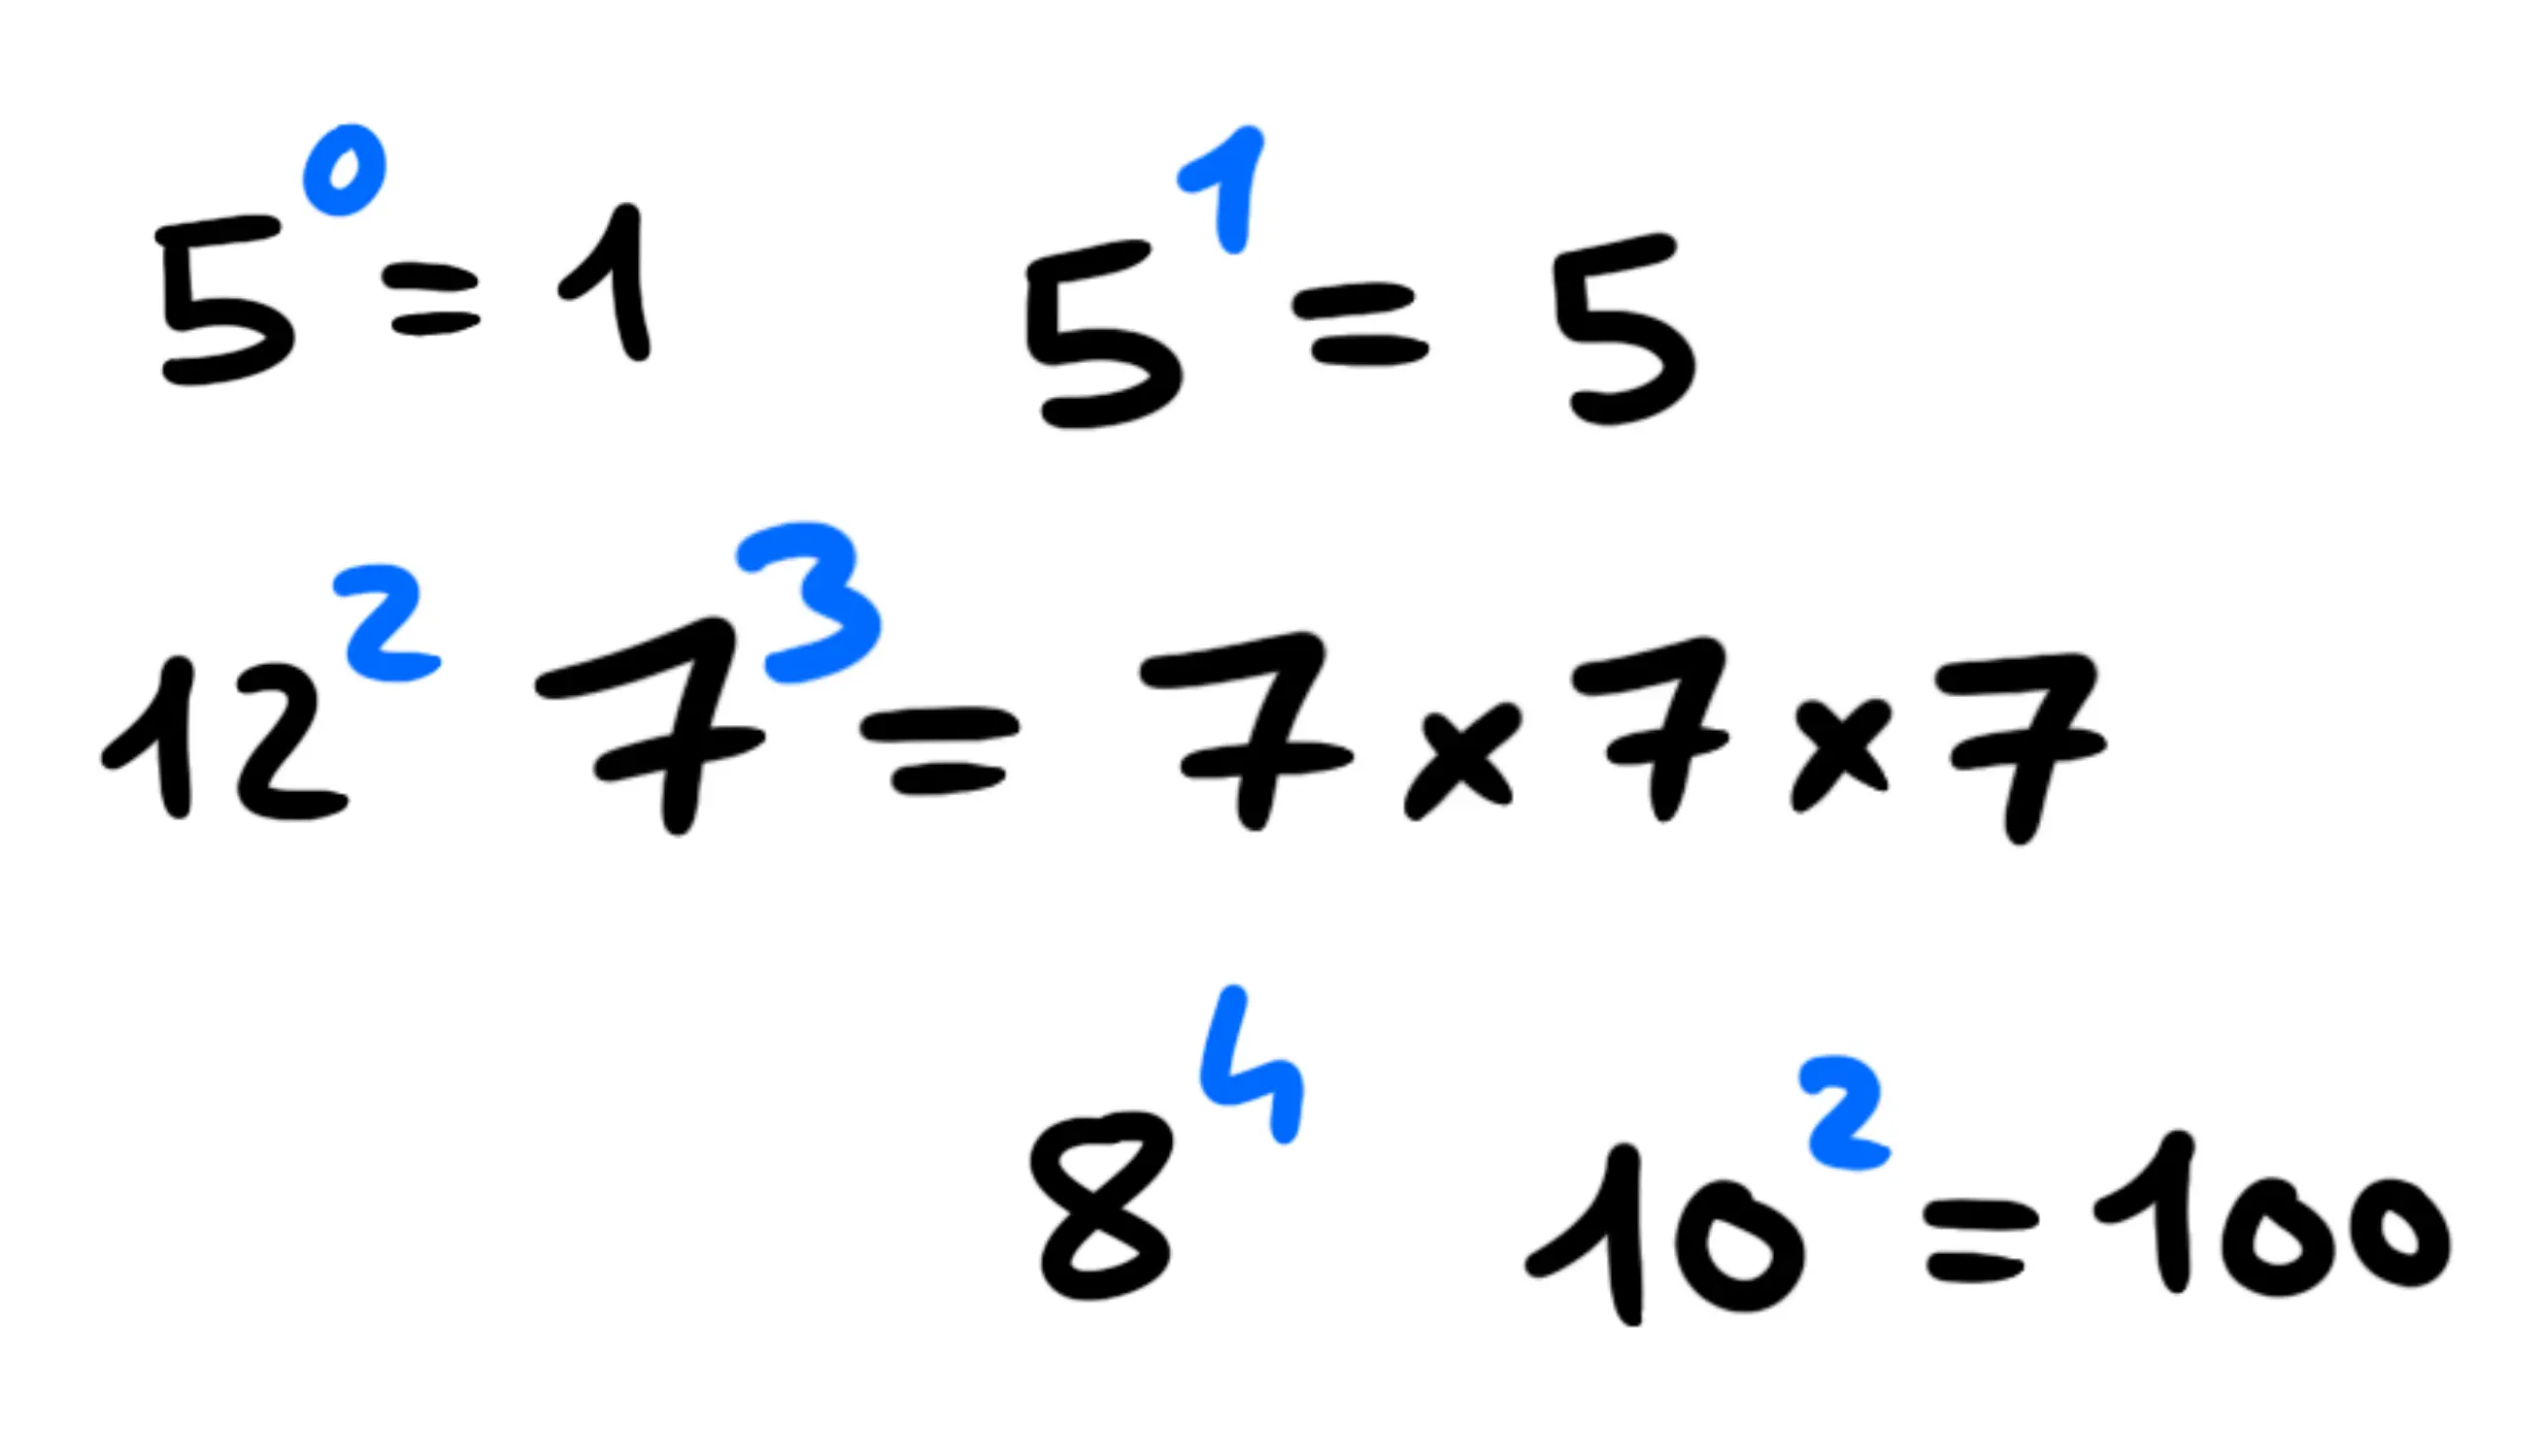 5⁰ = 1 5¹ = 5
12² 7³ = 7 × 7 × 7
8⁴ 10² = 100